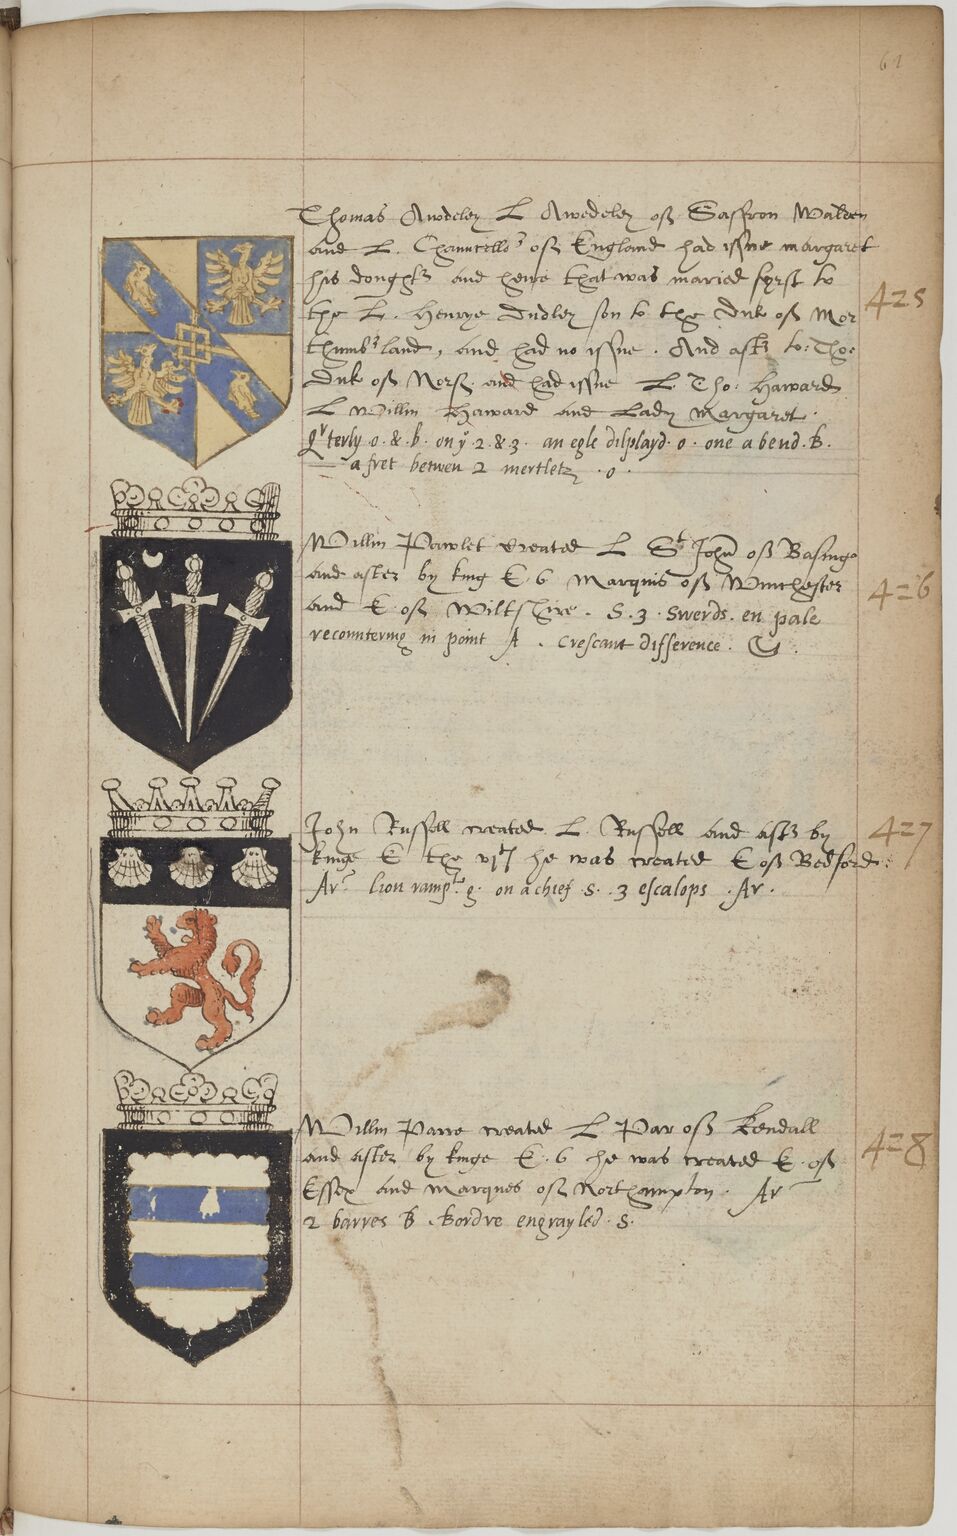 61
Thomas Awdeley L Awedeley off Saffron Walden
and L. Chauncello^r off England had issue margaret
his dought^r and heire that was maried fyrst to
the L. Henrye dudley son to the duk off Nor
thumb^rland, and had no issue. And aft^r to: Tho:
Duk off Norf. and had issue L. Tho: Haward
L Willm Haward and Lady Margaret.
Q^rterly. o. & . b. on y^e 2. & 3. an egle displayd. o. one a bend. B.
a fret betwen 2 mertletz. o.
425
Willm Pawlet created L S^t John off Basinge
and after by king E. 6 Marquis off Winchester
and E off Wiltshire. S. 3. Swerds. en pale
recountering in point A. Crescant difference. G.
426
John Russell created L. Russell and aft^r by
kinge E the vj^t he was created E off Bedford:
Ar^r lion ramp^te g. on a chief s. 3 escalops. Ar.
427
Willm Parre created L Par off Kendall
and after by kinge E. 6 he was created E. off
Essex and Marques off Northampton. Ar
2 barres B. Bordre engrayled. S.
428